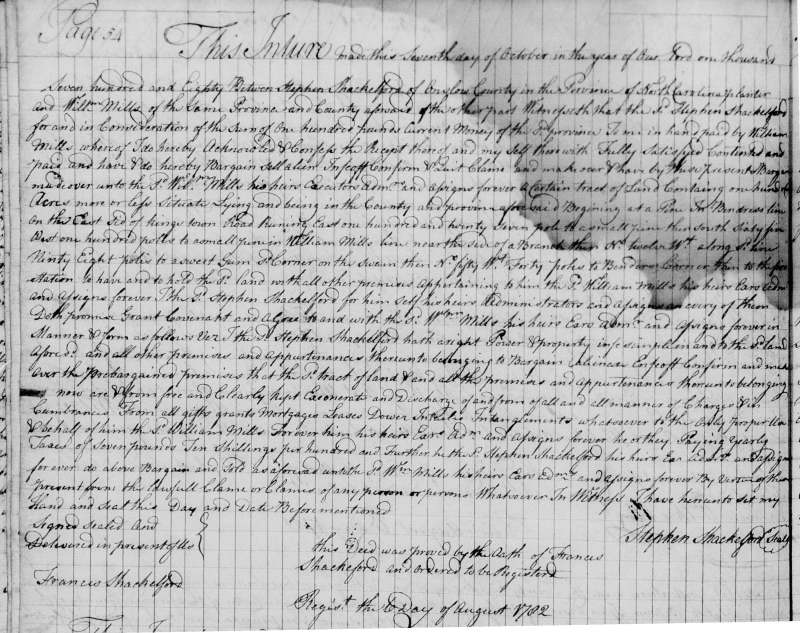 Page 54
This Inture made this Seventh day of October in the year of Our Lord one thousand
Seven hundred and Eighty Between Stephen Shackelford of Onslow County in the Province of North Carolina planter
and Willm Mills of the Same Province and County aforsaid of the other part Witnesseth that the Sd. Stephen Shackelford
for and in Consideration of the Sum of One hundred pounds Current Money of the Sd. province To me in hand paid by William
Mills whereof I do hereby Acknowled & Confess the Receipt thereof and my Self therewith Fulley Satisfied Contented and
paid and have & do hereby Bargain Sell alien Infeoff Confirm & Quit Claime and make over & have by these presents Bargain
made over unto the Sd. Wilm. Mills his heirs Executors Admrs. and assigns forever a Certain tract of Land Containg one hundred
Acres more or less Situate Lying and being in the County and province aforesaid Begining at a Pine In Benders line
On the East Sid of kings town Road Runing East one hundred and twenty Seven poles to a small pine then South Sixty five
West one hundred poles to a small pine in William Mills line near the side of a Branch then No. twelve Wt. along Sd. line
Ninty Eight poles to a Sweet Gum Sd. Corner on the Swam then No. fifty Wt. Forty poles to Benders Corner then to the first
station To have and to hold the Sd. land with all other premises Appertaining to him the Sd. William Mills his heirs Exrs Adm
and Assigns forever. The Sd. Stephen Shackelford for him self his heirs Administrators and Assigns and every of them
Doth promise Grant Covenant and Agree to and with the Sd. Wm. Mills his heirs Exrs Admrs. and Assigns forever in
Manner & form as follows Vez. The Sd. Stephen Shackelford hath a right Power & property in fee simple in and to the Sd. land
Afored. and all other premises and Appurtinances thereunto belonging to Bargain alienate Enfeoff Confirm and make
Over the Probargained premises that the Sd. tract of land & and all the premises and Appurtenances thereunto belonging
now are & from free and Clearly kept Exonerate and Discharge of and from all and all manner of Charge & in
Cumbrances From all gifts grants Mortgages Leases Dower Intanglements whatsoever to the Only proper Use
& behalf of him the Sd. William Mills Forever him his heirs Exrs. Adm and Assigns forever he or they Paying yearly
Taxes of Seven pounds Ten Shillings per hundred and Further he the Sd. Stephen Shackelford his heirs Exr Admrs. and assigns
forever do above Bargain and Sold as aforesaid unto the Sd. Wm Mills his heirs Exrs Admrs. and Assigns forever By Vertue of these
Present from the lawfull Claime or Claimes of any person or persons Whatsoever In Witness I have hereunto set my
Hand and Seal this Day and Date Beforementioned
Signed Sealed And
Delivered in present of Us
Stephen Shackelford Seal
Francis Shackelford
this Deed was proved by the Oath of Francis
Shackeford and ordered to be Registerd
Regist. the Day of August 1782